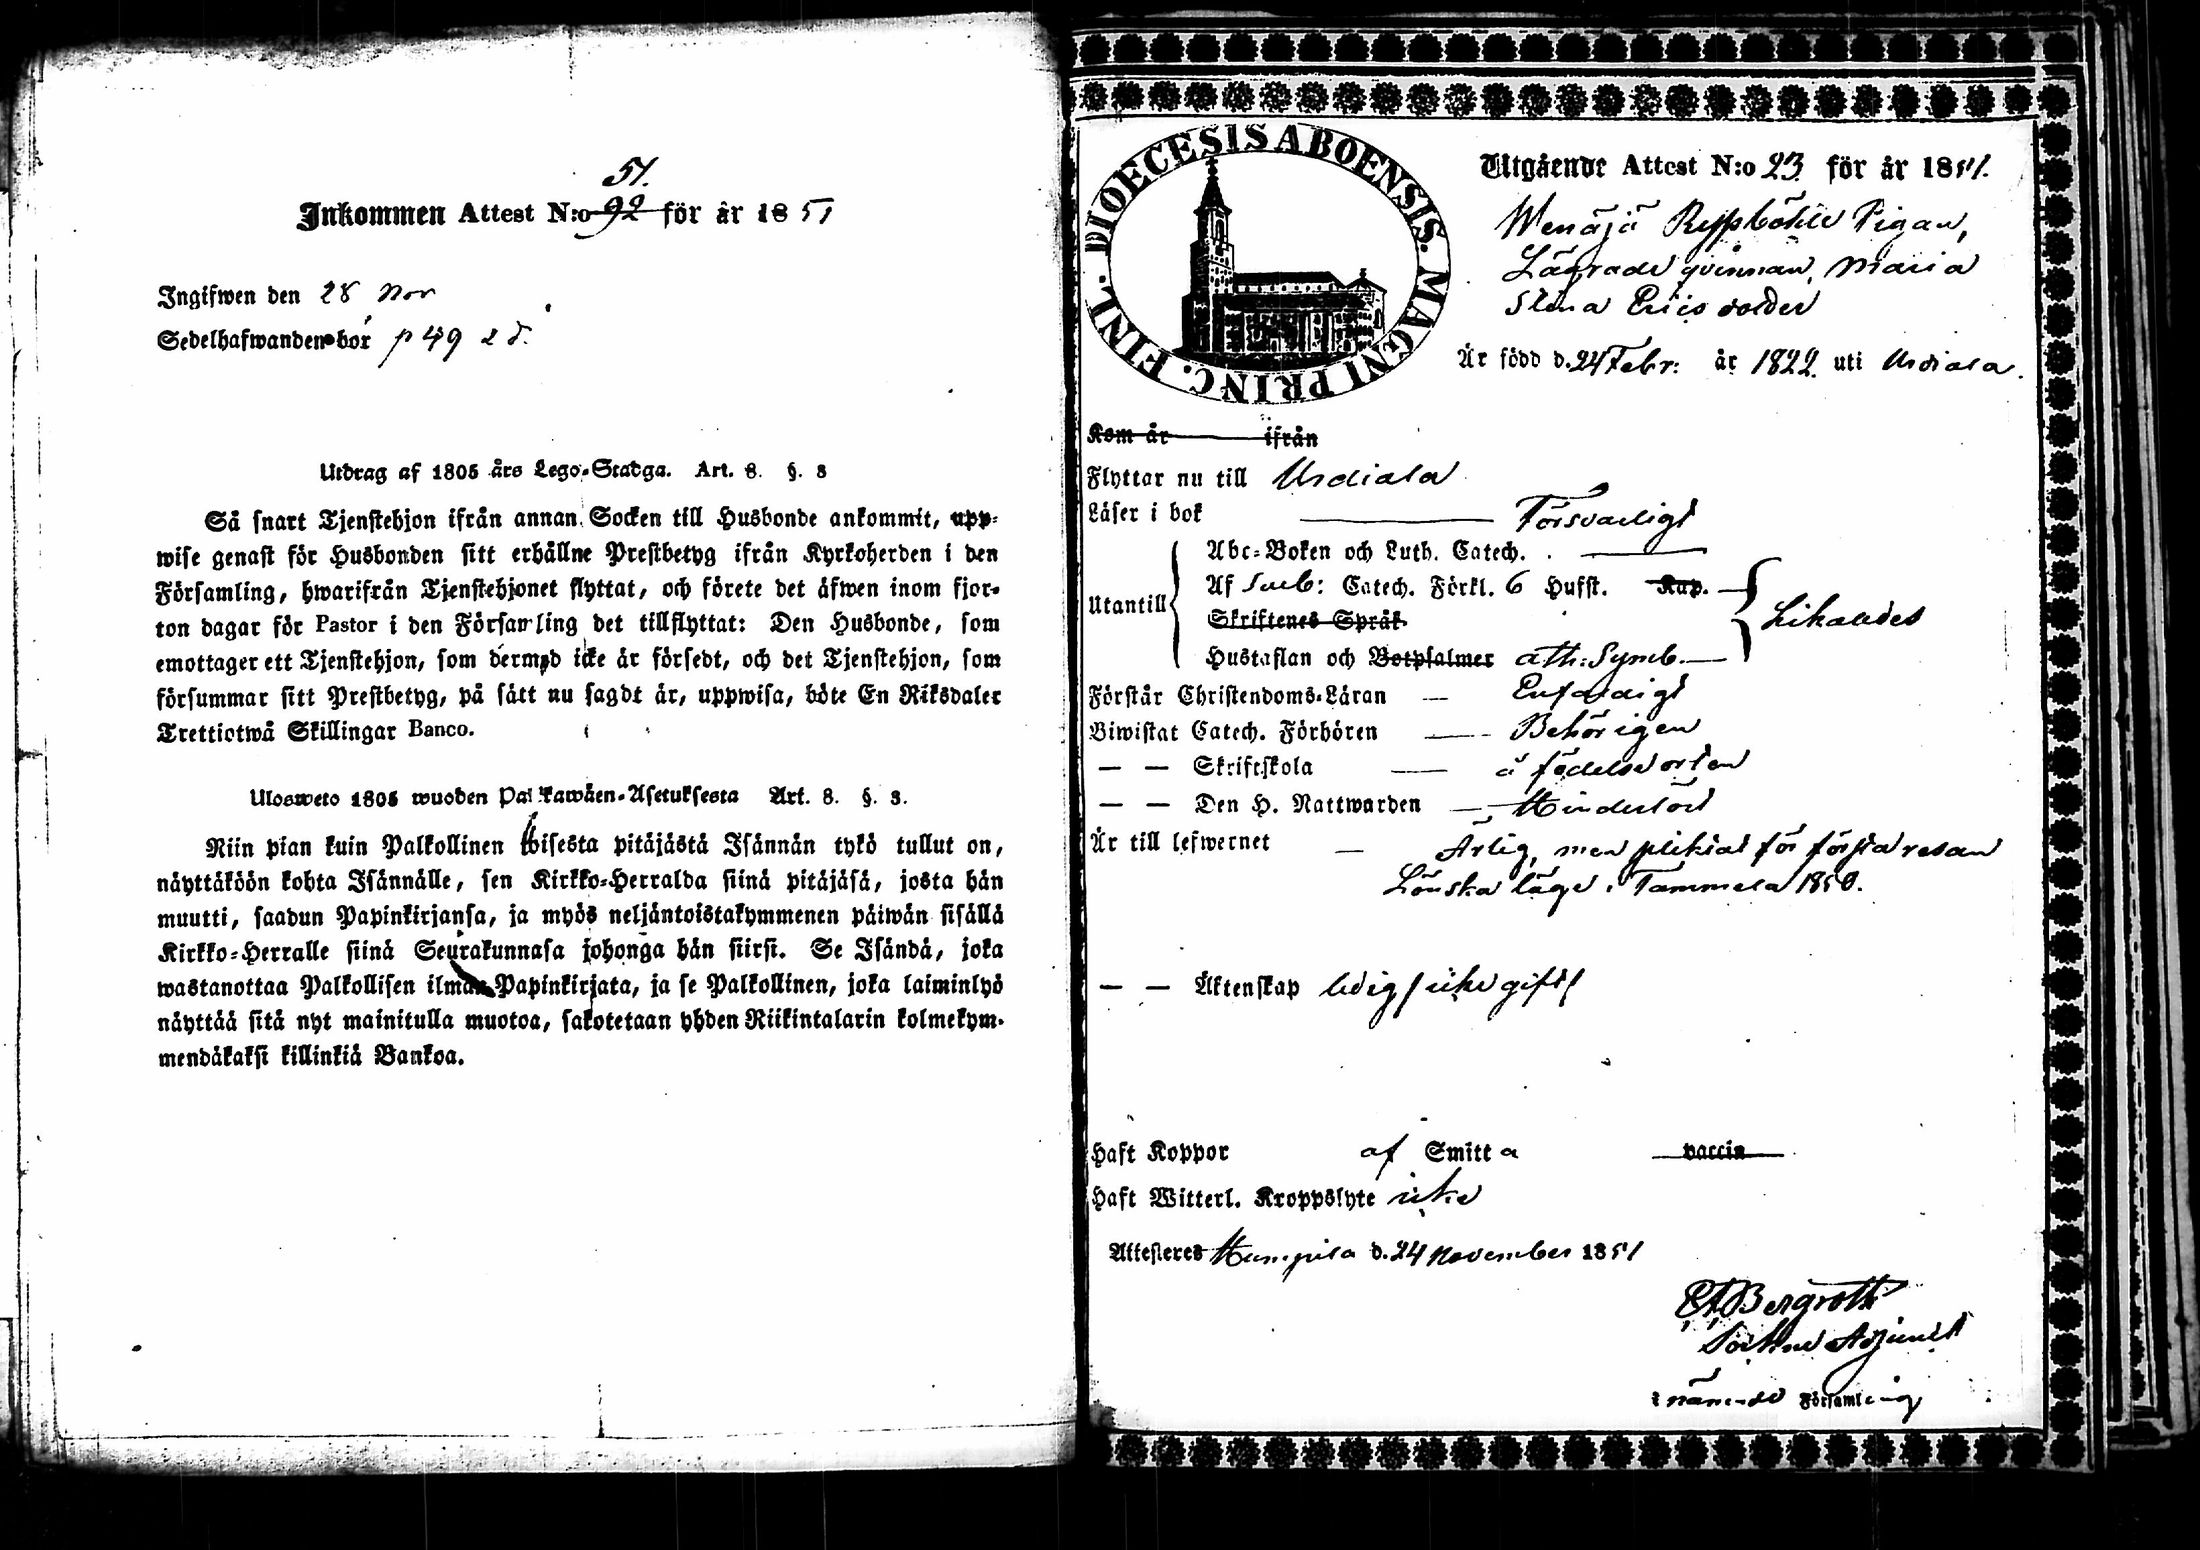 51.
Inkommen Attest N:o 92 för år 1851
Ingifwen den 28 Nov
Sedelhafwanden bor p 49
Utdrag af 1805 års Lego-Stadga. Art. 8. §. 3
Så snart Tjenstehjon ifrån annan Socken till Husbonde ankommit, upp-
wise genast för Husbonden sitt erhållne Prestbetyg ifrån Kyrkoherden i den
Församling, hwarifrån Tjenstehjonet flyttat, och förete det äfwen inom fjor-
ton dagar för Pastor i den Församling det tillflyttat: Den Husbonde, som
emottager ett Tjenstehjon, som dermed icke är försedt, och det Tjenstehjon, som
försummar sitt Prestbetyg, på sätt nu sagdt är, uppwisa, böte En Riksdaler
Trettiotwå Skillingar Banco.
Ulosweto 1805 wuoden Palkawäen-Asetuksesta Art. 8. §. 3.
Niin pian kuin Palkollinen toisesta pitäjästä Isännän tykö tullut on,
näyttäköön kohta Isännälle, sen Kirkko-Herralda siinä pitäjäsä, josta hän
muutti, saadun Papinkirjansa, ja myös neljäntoistakymmenen päiwän sisällä
Kirkko-Herralle siinä Seurakunnasa johonga hän siirsi. Se Isändä, joka
wastanottaa Palkollisen ilman Papinkirjata, ja se Palkollinen, joka laiminlyö
näyttää sitä nyt mainitulla muotoa, sakotetaan yhden Riikintalarin kolmekym-
mendäkaksi killinkiä Bankoa.
DIOECESIS ABOENSIS. MAGNI PRINC. FINL.
Utgående Attest N:o 23 för år 1851.
Wenäjä Pigan,
Lägrade qvinnan, Maria
Stina Ericsdotter
Är född d. 24 Febr: år 1822. uti Urdiala.
Kom år ifrån
Flyttar nu till Urdiala
Läser i bok Försvarligt
Abc-Boken och Luth. Catech.
Utantill Af Sveb: Catech. Förkl. 6 Hufst. Kap. Likaledes
Skriftenes Språk
Hustaflan och Botpsalmer ath: Symb.
Förstår Christendoms-Läran Enfaldigt
Biwistat Catech. Förhören Behörigen
— — Skriftskola å födelseorten
— — Den H. Nattwarden Hindertös
Är till lefwernet Ärlig, men pliktat för första resan
Lönska läge i Tammela 1850.
— — Äktenskap ledig (icke gift)
Haft Koppor af Smitta vaccin
Haft Witterl. Kroppslyte icke
Attesteres Humpila d. 24 November 1851
Bergroth
Adjunct
i nämnde Församling